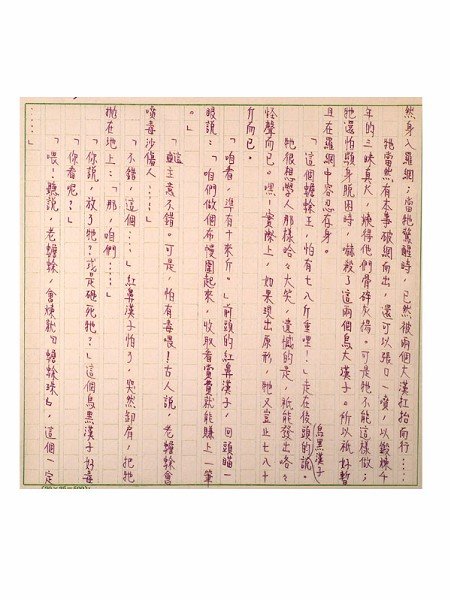 然身入羅網；當牠驚醒時，已然被兩個大漢扛抬而行……
牠當然有本事破網而出，還可以張口一噴，以鍛煉千
年的三昧真火，煉得他們骨碎灰揚。可是牠不能這樣做；
牠還怕顯身脫困時，嚇殺了這兩個烏大漢子。所以祇好暫
且在羅網中容忍存身。
「這個蟾蜍王，怕有七八斤重哩！」走在後頭的烏黑漢子說。
牠很想學人那樣哈哈大笑，遺憾的是，祇能發出咯咯
怪聲而已。嘿！實際上，如果現出原形，牠又豈止七八十
斤而已。
「咱看，準有十來斤。」前頭的紅鼻漢子，回頭瞄一
眼說：「咱們做個布幔圍起來，收取看賞費就能賺上一筆
。」
「這主意不錯。可是，怕有毒喂！古人說，老蟾蜍會
噴毒沙傷人……」
「不錯，這個……」紅鼻漢子怕了，突然卸肩，把牠
拋在地上：「那，咱們……」
「你說，放了牠？或是砸死牠？」這個烏黑漢子好毒
「你看呢？」
「喂！聽說，老蟾蜍，會煉就句蟾蜍珠白，這個一定
……」
(20×25=500)